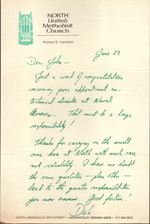 NORTH
United
Methodist
Church
Richard E. Hamilton
June 29
Dear John -
Just a word of congratulations
concerning your appointment as
technical director at Naval
Avionics. That must be a huge
responsibility!
Thanks for carrying on the
one here at North with such care
and reliability. I know we
the new
and to the greater responsibility
you now assume. Good fortune!
Dick
NORTH MERIDIAN AT 38TH STREET • INDIANAPOLIS, INDIANA 46208 •